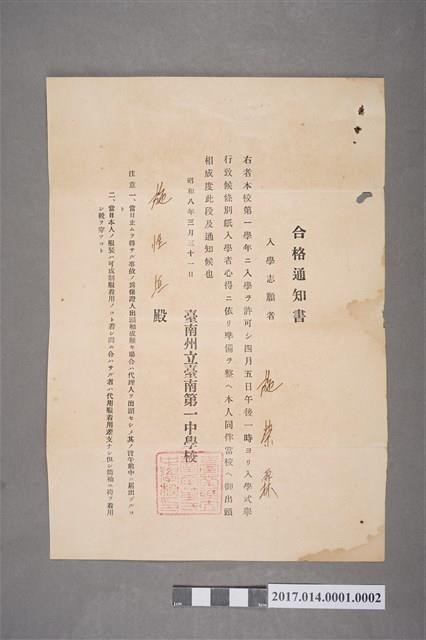 合格通知書
入學志願者 施榮森
右者本校第一學年ニ入學ヲ許可シ四月五日午後一時ヨリ入學式擧
行致候條別紙入學者心得ニ依リ準備ヲ整ヘ本人同伴當校ヘ御出頭
相成度此段及通知候也
昭和八年三月三十一日
臺南州立臺南第一中學校
施 殿
注意 一、當日止ムヲ得サル事故ノ爲保證人出頭相成難キ場合ハ代理人ヲ出頭セシメ其ノ旨午前中ニ屆出ヅルコ
ト
二、當日本人ノ服裝ハ可成制服着用ノコト若シ間ニ合ハサル者ハ代用服着用差支ナシ但シ筒袖ニ袴ヲ着用
シ靴ヲ穿ツコト
2017.014.0001.0002